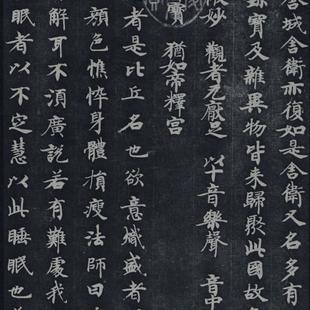 舍城舍衛亦復如是舍衛又名多有
寶及雜異物皆来歸聚此國故
妙 觀者无厭足 以十音樂聲 音中
寶 猶如帝釋宮
者是比丘名也欲意熾盛者
顏色憔悴身體損瘦法師曰
解耳不須廣說若有難處我
眠者以不定慧以此睡眠也